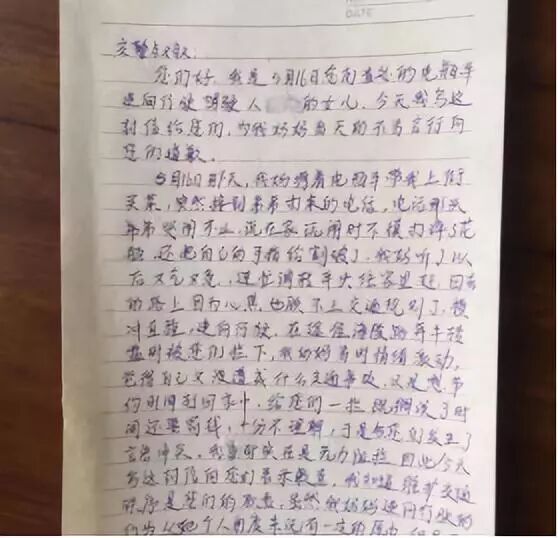 DATE
交警叔叔:
您们好,我是5月16日您们查处的电瓶车
逆向行驶驾驶人 的女儿,今天我写这
封信给您们,为我妈妈当天的不当言行向
您们道歉。
5月16日那天,我妈骑着电瓶车带我上街
买菜,突然接到弟弟打来的电话,电话那头
弟弟哭闹不止,说在家玩闹时不慎打碎了花
瓶,还把自己的手指给割破了。我妈听了以
后又气又急,连忙调转车头往家里赶,回去
的路上因为心急,也顾不上交通规则了,横
冲直撞,逆向行驶,在途径海陵路
时被您们拦下,我妈妈当时情绪激动,
觉得自己又没造成什么交通事故,只是想节
约时间赶回家中,给您们一拦 浪费了时
间还要罚钱,十分不理解,于是与您们发生了
言语冲突,我当时实在是无力 因此今天
写这封信向您们表示歉意,我知道维护交通
秩序是您们的职责,虽然我妈妈逆向行驶的
行为从她个人角度来说有一定的原因